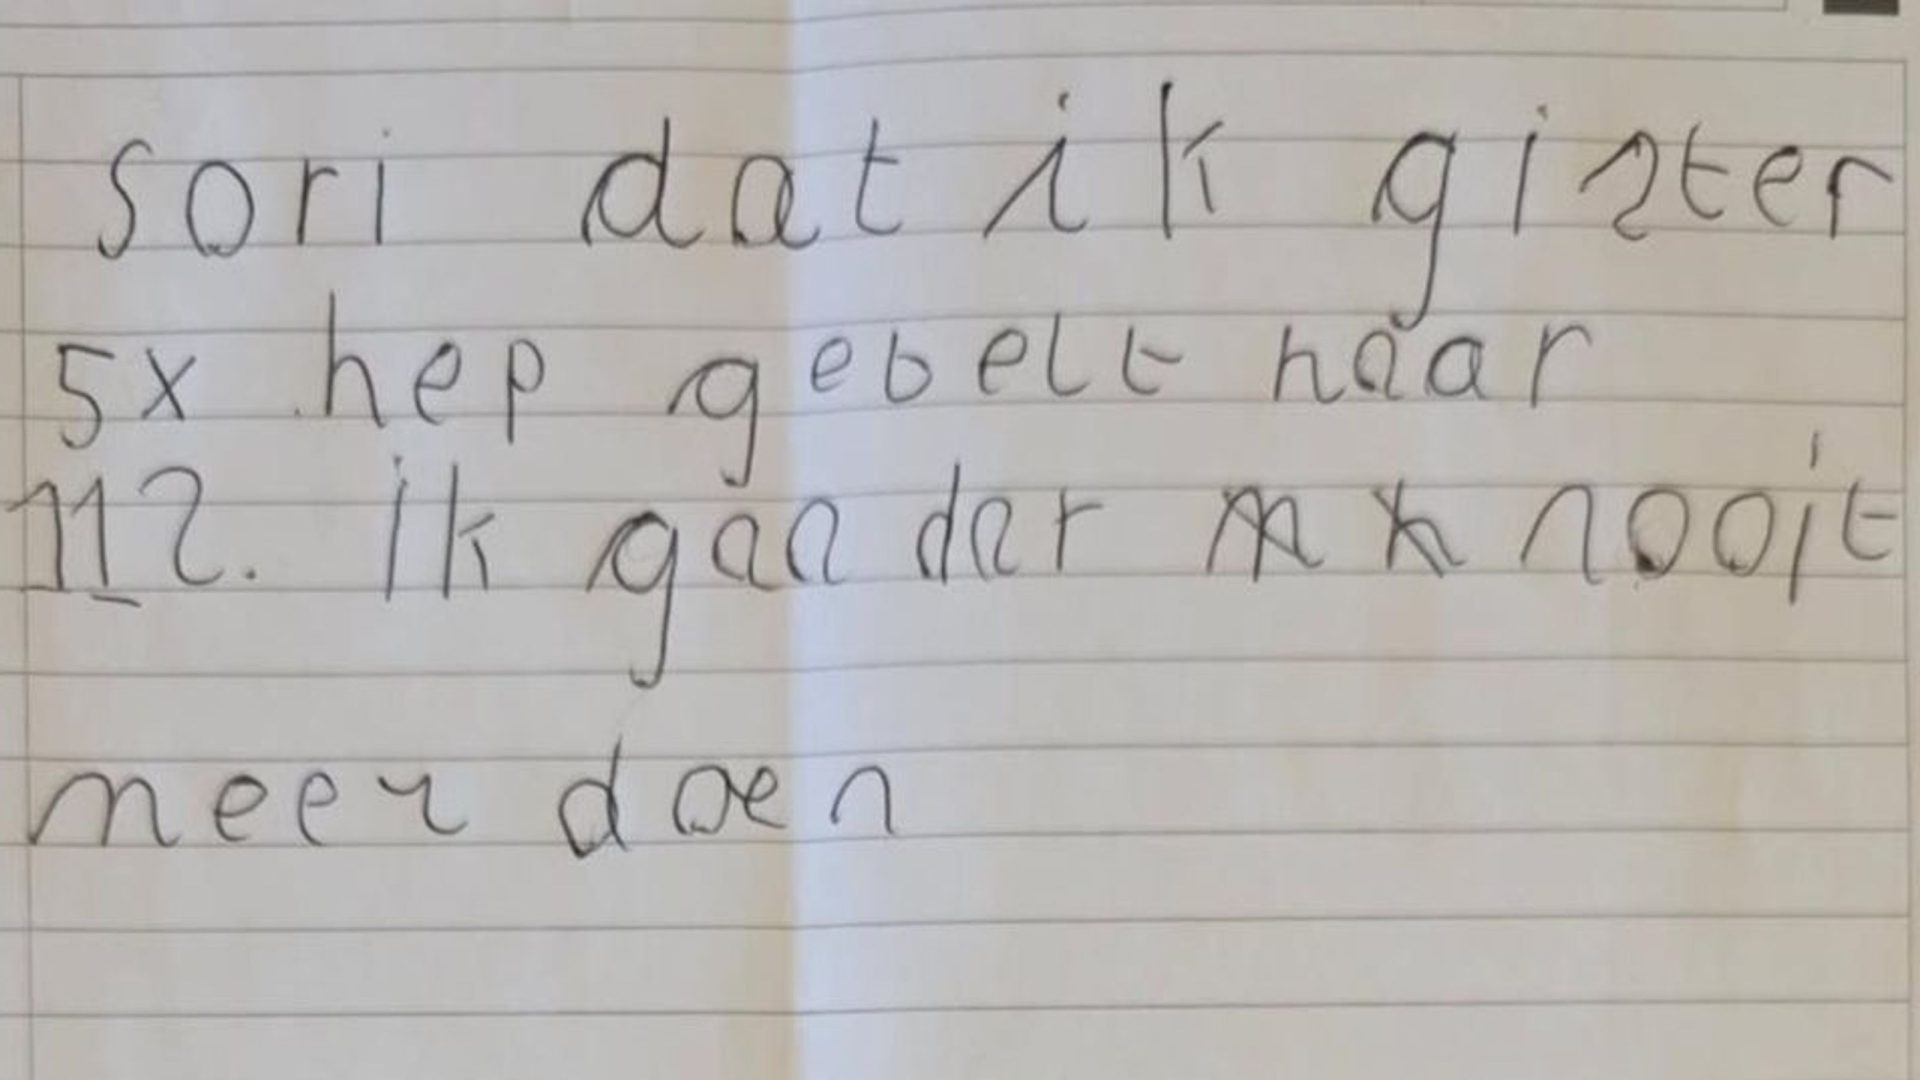 sori dat ik gister
5x hep gebelt naar
112. ik gaa dat nooit
meer doen